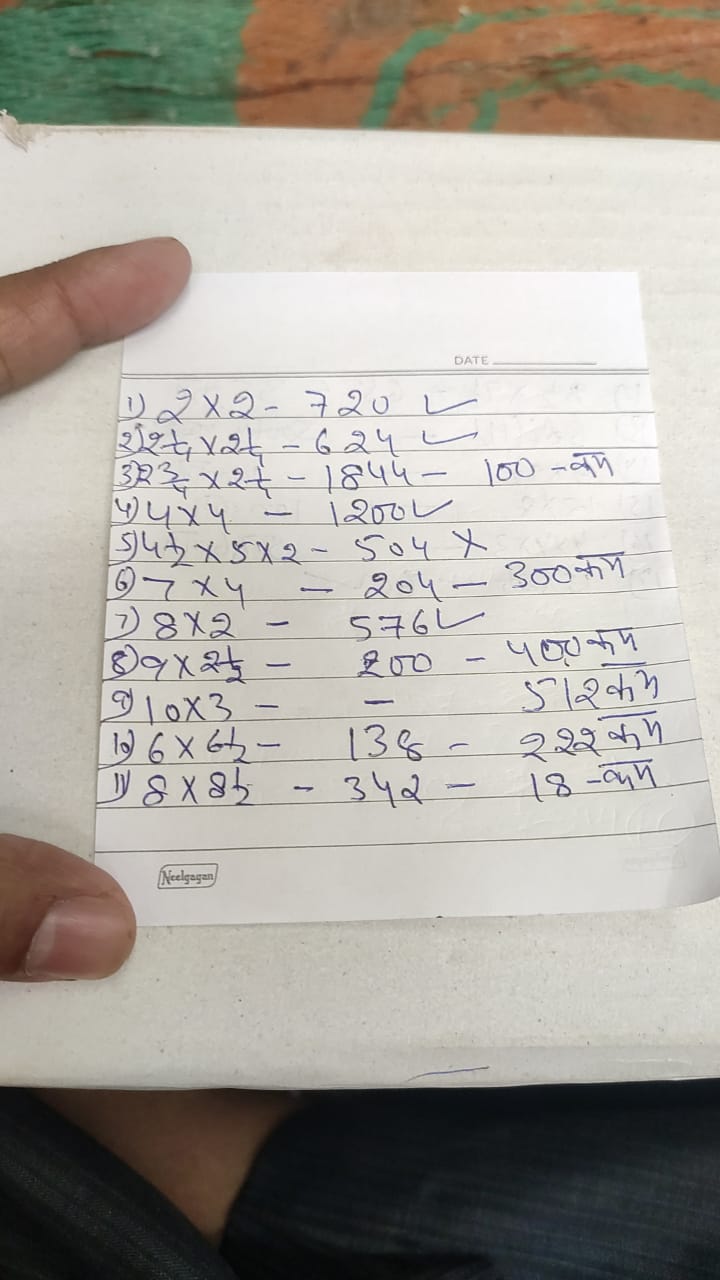 DATE
1) 2 x 2 - 720 ✓
2) 2 1/4 x 2 1/4 - 624 ✓
3) 2 3/4 x 2 1/4 - 1844 - 100 - कम
4) 4 x 4 - 1200 ✓
5) 4 1/2 x 5 x 2 - 504 X
6) 7 x 4 - 204 - 300 कम
7) 8 x 2 - 576 ✓
8) 9 x 2 1/2 - 200 - 400 कम
9) 10 x 3 - - 512 कम
10) 6 x 6 1/2 - 138 - 222 कम
11) 8 x 8 1/2 - 342 - 18 - कम
Neelgagan